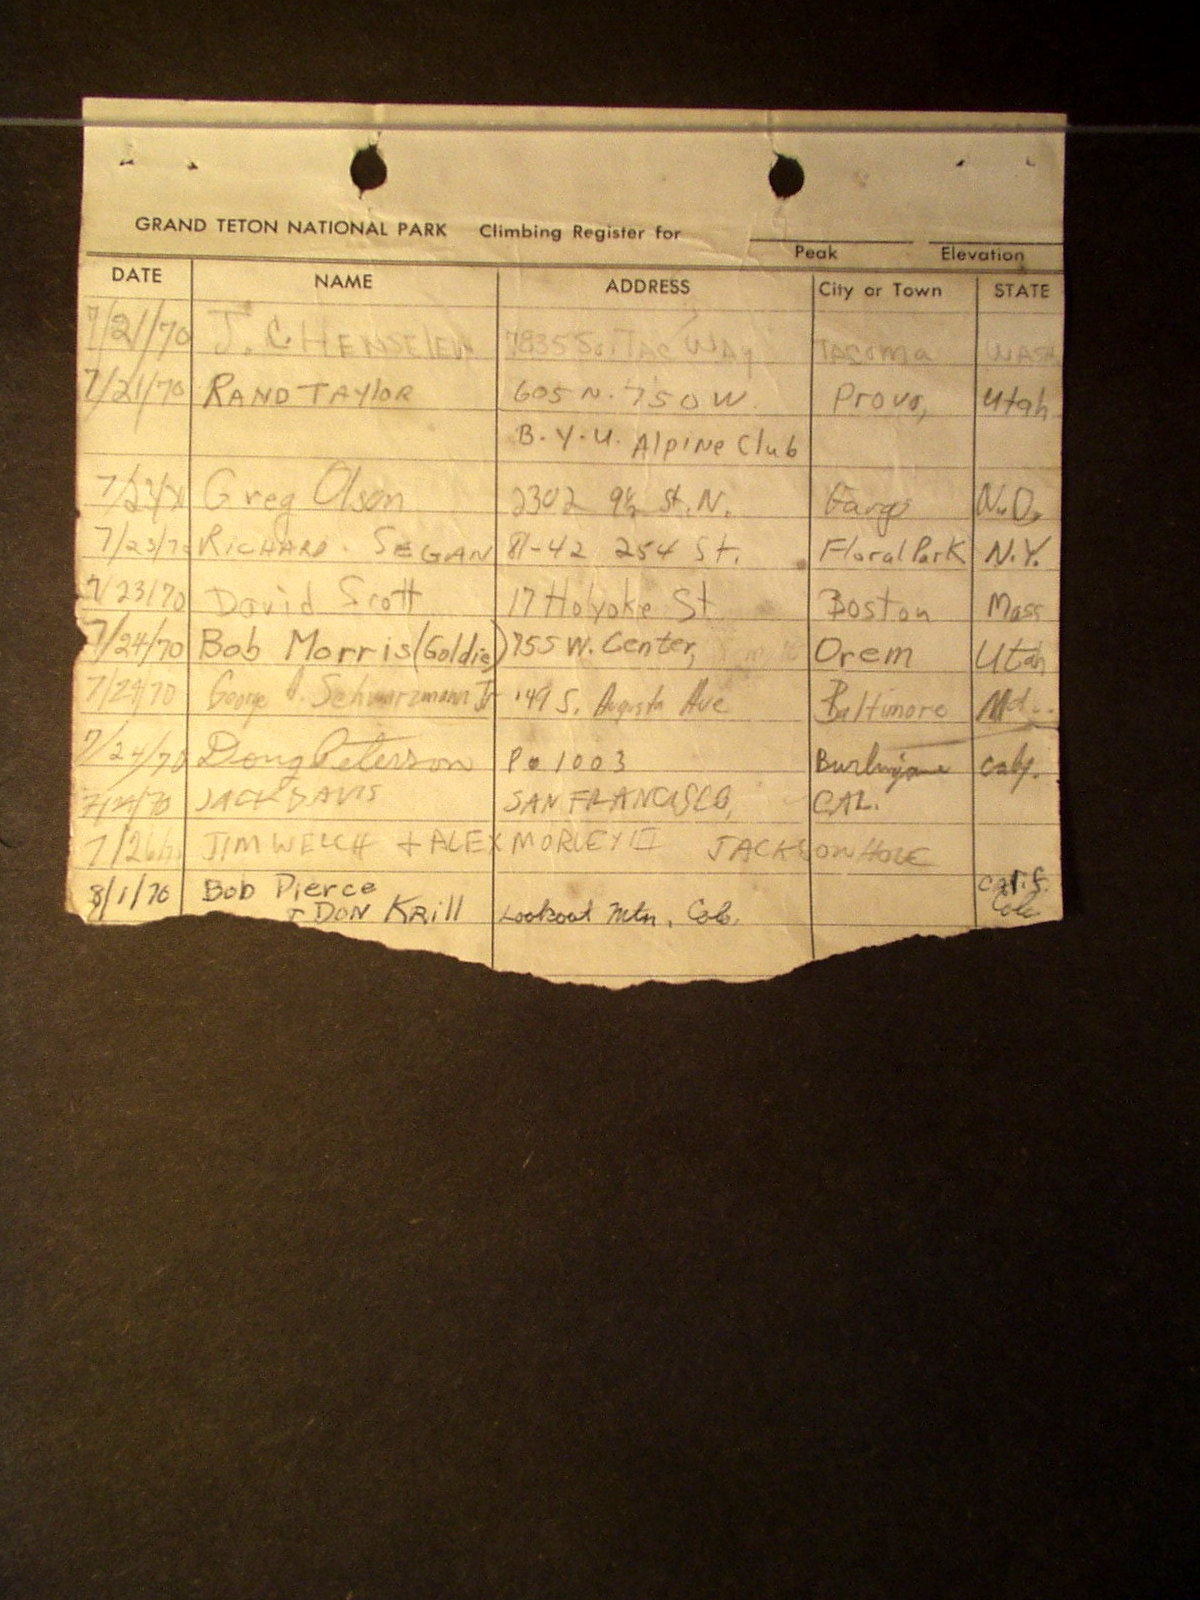 GRAND TETON NATIONAL PARK Climbing Register for
Peak Elevation
DATE NAME ADDRESS City or Town STATE
7/21/70 J. C HENSELEN 7835 So. TAC WAY TACOMA WASH
7/21/70 RAND TAYLOR 605 N. 750 W. Provo, Utah
B.Y.U. Alpine Club
Greg Olson 2302 9½ St. N. Fargo N.D.
7/23/70 RICHARD SEGAN 81-42 254 St. Floral Park N.Y.
7/23/70 David Scott 17 Holyoke St Boston Mass
7/24/70 Bob Morris (Goldie) 755 W. Center, Orem Utah
7/24/70 George Schwarzmann Jr 49 S. Augusta Ave Baltimore Md.
7/24/70 Doug Peterson Po 1003 Burlingame calif.
JACK DAVIS SAN FRANCISCO, CAL.
JIM WELCH + ALEX MORLEY III JACKSON HOLE
8/1/70 Bob Pierce Calif.
+ DON KRill Lookout Mtn. Colo. Colo